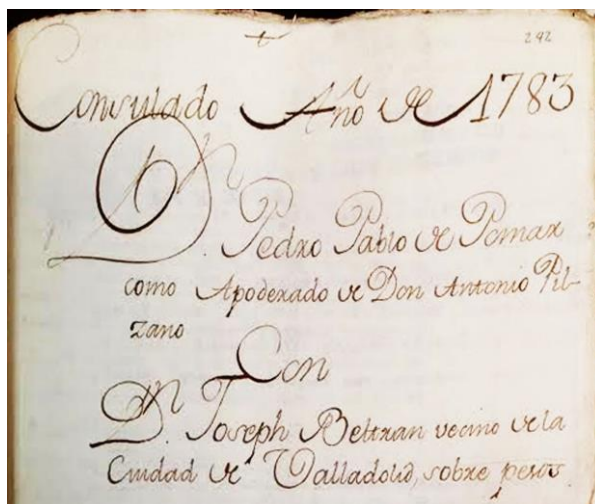 242
Consulado Año de 1783
Dn. Pedro Pablo de Pomar
como Apoderado de Don Antonio Pil-
zano
Con
Dn. Joseph Beltran vecino de la
Ciudad de Valladolid, sobre pesos